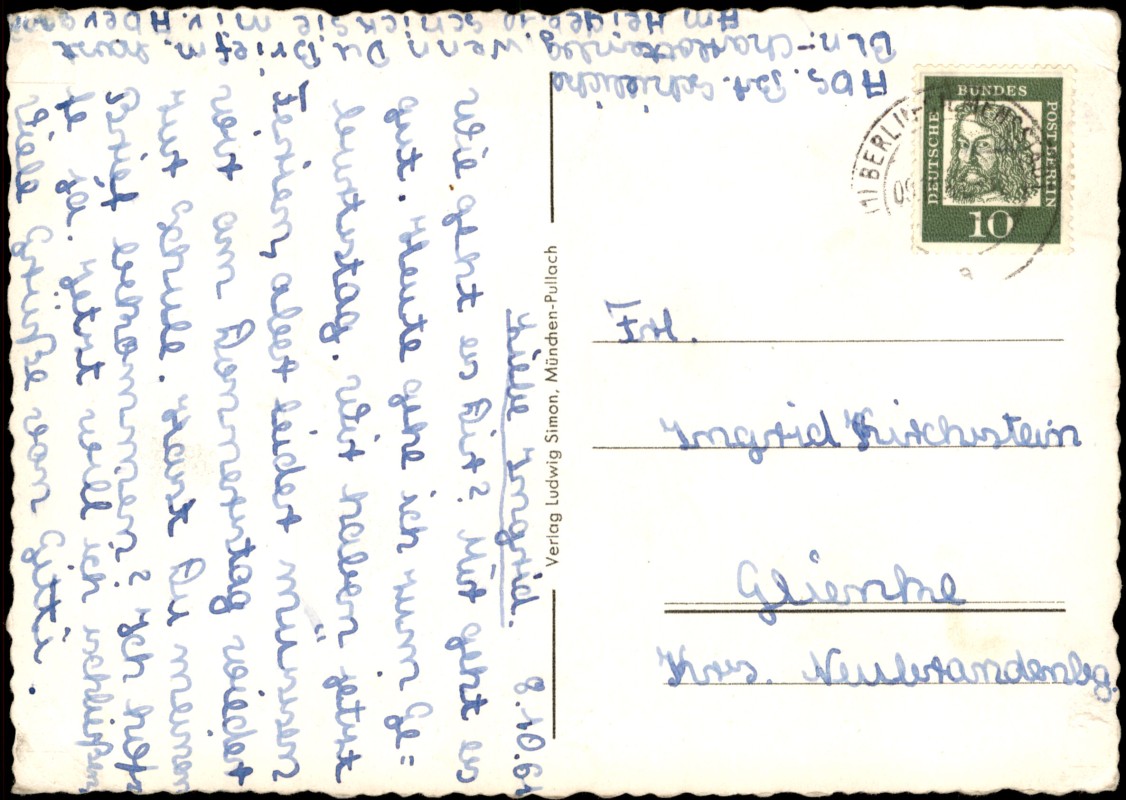 Liebe Ingrid. 8.10.61
Wie geht es Dir? Mir geht es
gut. Heute gehe ich zum Ge=
burtstag. Wir haben jetzt
Ferien, aber leider müssen
wir am Donnerstag wieder
zur Schule. Hast Du meinen
Brief bekommen? Ich hoff
te ja. Jetzt will ich schließen
Viele Grüße von Gitti.
Abs. Schielicke
Bln-Charlottenbg. Wenn Du Briefm. hast
Am schick sie mi v. Aber
Verlag Ludwig Simon, München-Pullach
DEUTSCHE BUNDES POST BERLIN
10
BERLIN
Frl.
Ingrid Kirchstein
Glienke
Krs. Neubrandenbg.